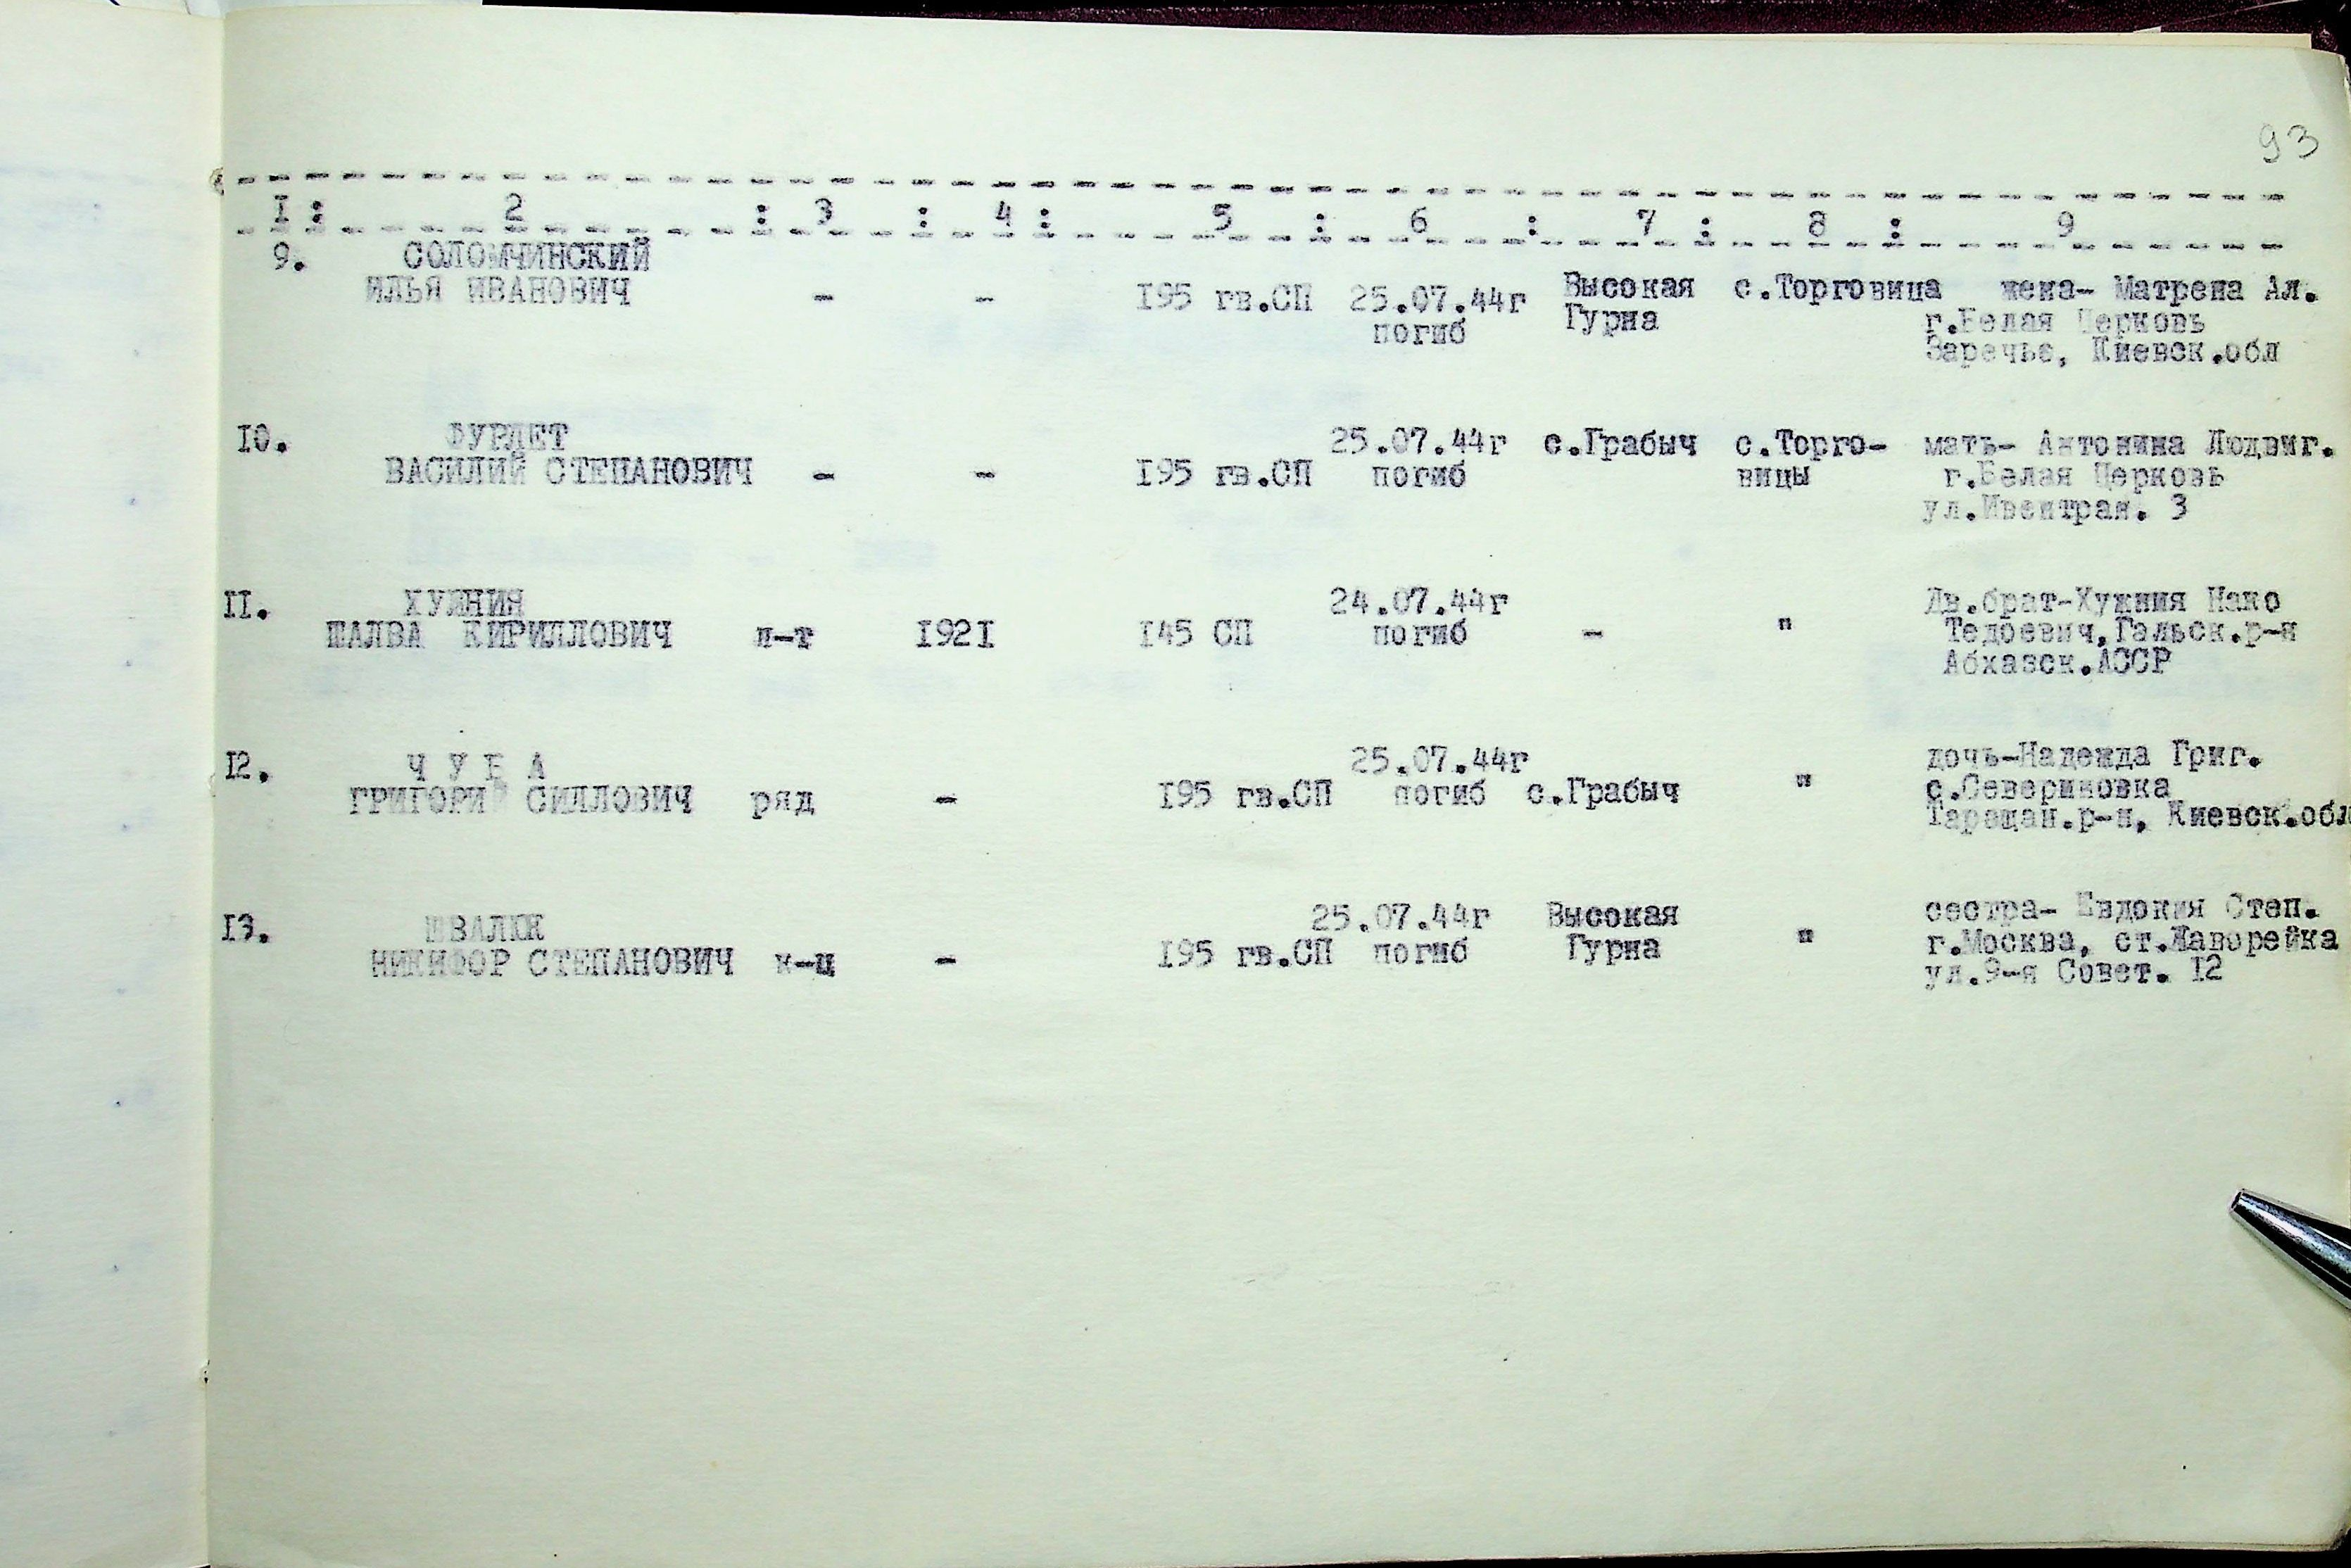 93
I : 2 : 3 : 4 : 5 : 6 : 7 : 8 : 9
9. СОЛОМЧИНСКИЙ
ИЛЬЯ ИВАНОВИЧ - - I95 гв.СП 25.07.44г Высокая с.Торговица жена- Матрена Ал.
погиб Гурна г.Белая Церковь
Заречье, Киевск.обл
I0. ФУРЛЕТ 25.07.44г с.Грабыч с.Торго- мать- Антонина Людвиг.
ВАСИЛИЙ СТЕПАНОВИЧ - - I95 гв.СП погиб вицы г.Белая Церковь
ул. 3
II. ХУЖНИЯ 24.07.44г Дв.брат-Хужния Нако
ШАЛВА КИРИЛЛОВИЧ л-т I92I I45 СП погиб - " Тедоевич,Гальск.р-н
Абхазск.АССР
I2. Ч У Б А 25.07.44г дочь-Надежда Григ.
ГРИГОРИЙ СИЛЛОВИЧ ряд - I95 гв.СП погиб с.Грабыч " с.Севериновка
Таращан.р-н, Киевск.обл
I3. 25.07.44г Высокая сестра- Евдокия Степ.
НИКИФОР СТЕПАНОВИЧ к-ц - I95 гв.СП погиб Гурна " г.Москва, ст.Жаворейка
ул.9-я Совет. I2